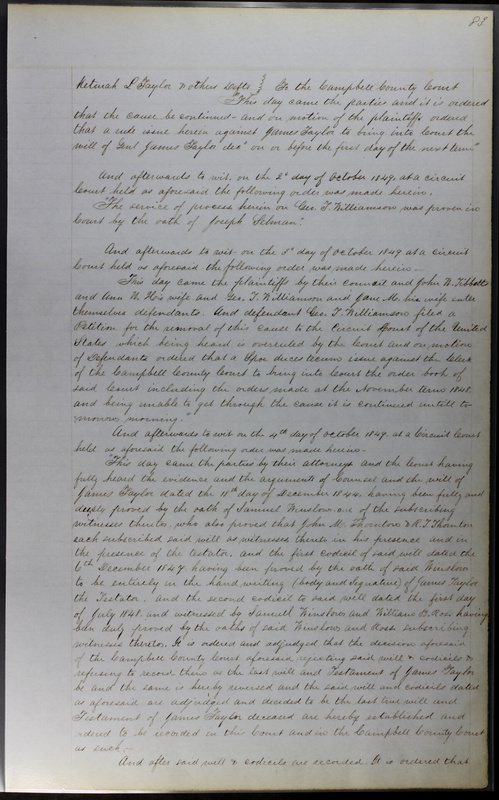 83
Keturah L Taylor & others Defts } To the Campbell County Court
"This day came the parties and it is ordered
that the cause be continued – and on motion of the plaintiffs ordered
that a rule issue herein against James Taylor to bring into Court the
will of Genl James Taylor decd on or before the first day of the next term"
And afterwards to wit. on the 2d day of October 1849. at a circuit
Court held as aforesaid the following order was made herein.
"The service of process herein on Geo. T. Williamson was proven in
Court by the oath of Joseph Selman".
And afterwards to wit on the 3d day of October 1849 at a circuit
Court held as aforesaid the following order was made herein –
This day came the plaintiffs by their council and John W. Tibbatts
and Ann W. his wife and Geo. T. Williamson and Jane M. his wife enter
themselves defendants. And defendant Geo. T. Williamson filed a
Petition for the removal of this cause to the Circuit Court of the United
States which being heard is overruled by the Court and on motion
of Defendants ordered that a Spoe duces tecum issue against the Clerk
of the Campbell County Court to bring into Court the order book of
said Court including the orders made at the November term 1848.
and being unable to get through the cause it is continued untill to-
morrow morning."
And afterwards to wit on the 4th day of October 1849. at a Circuit Court
held as aforesaid the following order was made herein –
"This day came the parties by their attorneys and the Court having
fully heard the evidence and the arguments of Counsel and the will of
James Taylor dated the 11th day of December 1844. having been fully and
deeply proved by the oath of Samuel Winslow one of the subscribing
witnesses thereto. who also proved that John M. Thornton & R. T. Thornton
each subscribed said will as witnesses thereto in his presence and in
the presence of the testator. and the first codicil of said will dated the
6th December 1847 having been proved by the oath of said Winslow
to be entirely in the hand writing (body and signature) of James Taylor
the Testator. and the second codicil to said will dated the first day
of July 1848. and witnessed by Samuel Winslow and William B. Ross having
been duly proved by the oaths of said Winslow and Ross subscribing
witnesses thereto. It is ordered and adjudged that the decision aforesaid
of the Campbell County Court aforesaid rejecting said will & codicils &
refusing to record them as the last will and Testament of James Taylor
be and the same is hereby reversed and the said will and codicils dated
as aforesaid are adjudged and decided to be the last true will and
Testament of James Taylor deceased are hereby established and
ordered to be recorded in this Court and in the Campbell County Court
as such –
And after said will & codicils are recorded. It is ordered that